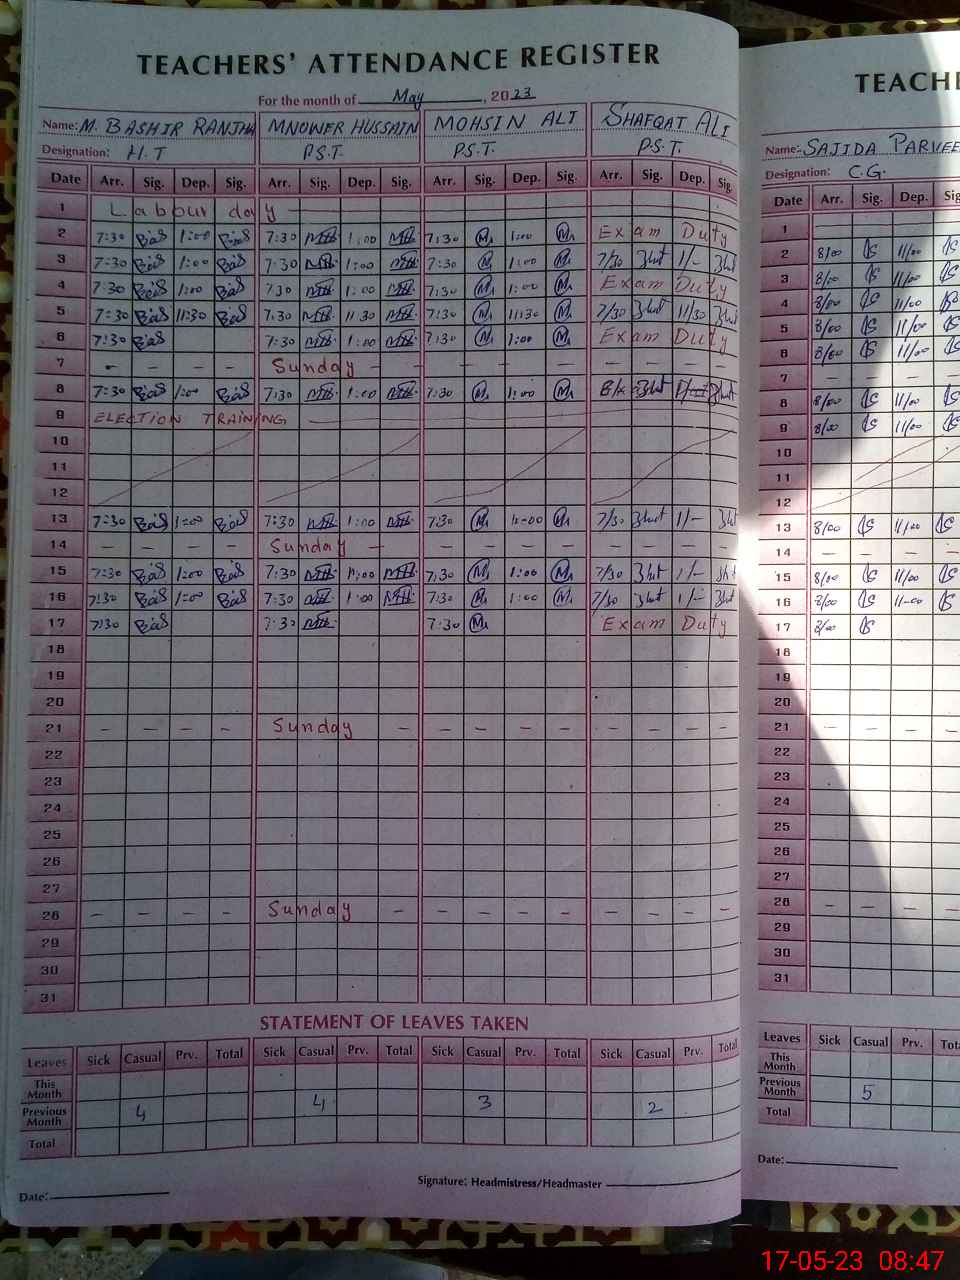 TEACHERS' ATTENDANCE REGISTER
For the month of May, 2023
Name: M. BASHIR RANJHA MNOWER HUSSAIN MOHSIN ALI SHAFQAT ALI
Designation: H.T P.S.T. P.S.T. P.S.T.
Date Arr. Sig. Dep. Sig. Arr. Sig. Dep. Sig. Arr. Sig. Dep. Sig. Arr. Sig. Dep. Sig.
1 Labour day
2 7:30 1:00 7:30 1:00 7:30 1:00 Exam Duty
3 7:30 1:00 7:30 1:00 7:30 1:00 7/30 1/-
4 7:30 1:00 7:30 1:00 7:30 1:00 Exam Duty
5 7:30 11:30 7:30 11:30 7:30 11:30 7/30 11/30
6 7:30 7:30 1:00 7:30 1:00 Exam Duty
7 - - Sunday - - - - - - - - - -
8 7:30 1:00 7:30 1:00 7:30 1:00
9 ELECTION TRAINING
10
11
12
13 7:30 1:00 7:30 1:00 7:30 1:00 7/30 1/-
14 - - - - Sunday - - - - - - - - -
15 7:30 1:00 7:30 1:00 7:30 1:00 7/30 1/-
16 7:30 1:00 7:30 1:00 7:30 1:00 7/30 1/-
17 7:30 7:30 7:30 Exam Duty
18
19
20
21 - - - - Sunday - - - - - - - - -
22
23
24
25
26
27
28 - - - - Sunday - - - - - - - - -
29
30
31
STATEMENT OF LEAVES TAKEN
Leaves Sick Casual Prv. Total Sick Casual Prv. Total Sick Casual Prv. Total Sick Casual Prv. Total
This Month
Previous Month 4 4 3 2
Total
Date:
Signature: Headmistress/Headmaster
TEACHE
Name: SAJIDA PARVEE
Designation: C.G.
Date Arr. Sig. Dep. Sig
1
2 8/00 11/00
3 8/00 11/00
4 8/00 11/00
5 8/00 11/00
6 8/00 11/00
7 - - - -
8 8/00 11/00
9 8/00 11/00
10
11
12
13 8/00 11/00
14 - - - -
15 8/00 11/00
16 8/00 11-00
17 8/00
18
19
20
21 - - - -
22
23
24
25
26
27
28 - - - -
29
30
31
Leaves Sick Casual Prv. Tota
This Month
Previous Month 5
Total
Date:
17-05-23 08:47